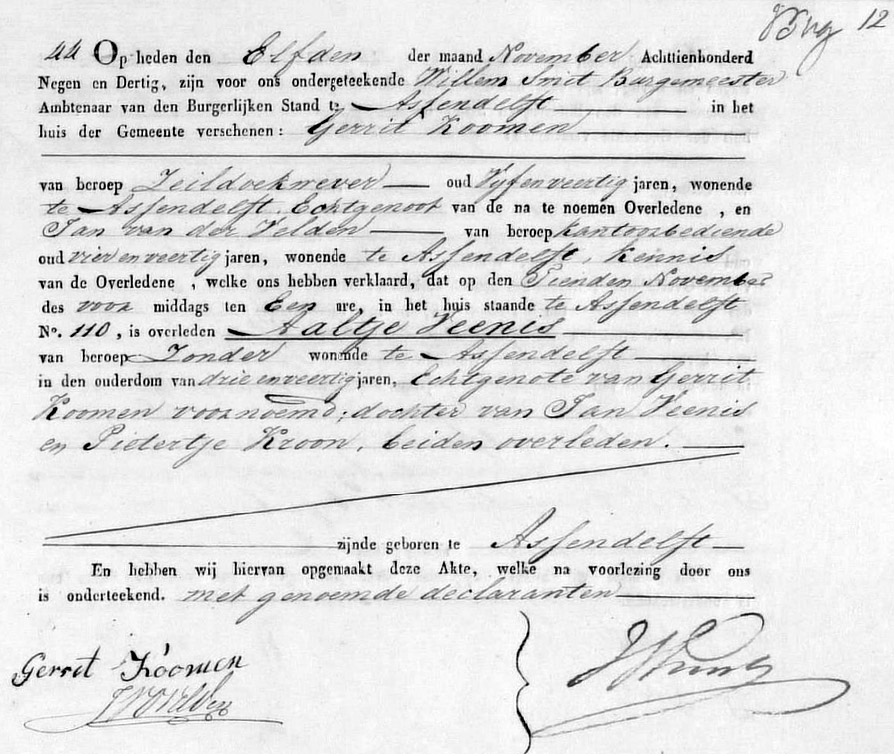 12
44 Op heden den Elfden der maand November Achttienhonderd
Negen en Dertig, zijn voor ons ondergeteekende Willem Smit Burgemeester
Ambtenaar van den Burgerlijken Stand te Assendelft in het
huis der Gemeente verschenen: Gerrit Koomen
van beroep Zeildoekwever oud Vyf en veertig jaren, wonende
te Assendelft, Echtgenoot van de na te noemen Overledene , en
Jan van der Velden van beroep kantoorbediende
oud vier en veertig jaren, wonende te Assendelft, kennis
van de Overledene , welke ons hebben verklaard, dat op den Tienden November
des voor middags ten Een ure, in het huis staande te Assendelft
No. 110 , is overleden Aaltje Veenis
van beroep Zonder wonende te Assendelft
in den ouderdom van drie en veertig jaren, Echtgenote van Gerrit
Koomen voornoemd; dochter van Jan Veenis
en Pietertje Kroon, beiden overleden.
zijnde geboren te Assendelft
En hebben wij hiervan opgemaakt deze Akte, welke na voorlezing door ons
is onderteekend. met genoemde declaranten
Gerret Koomen